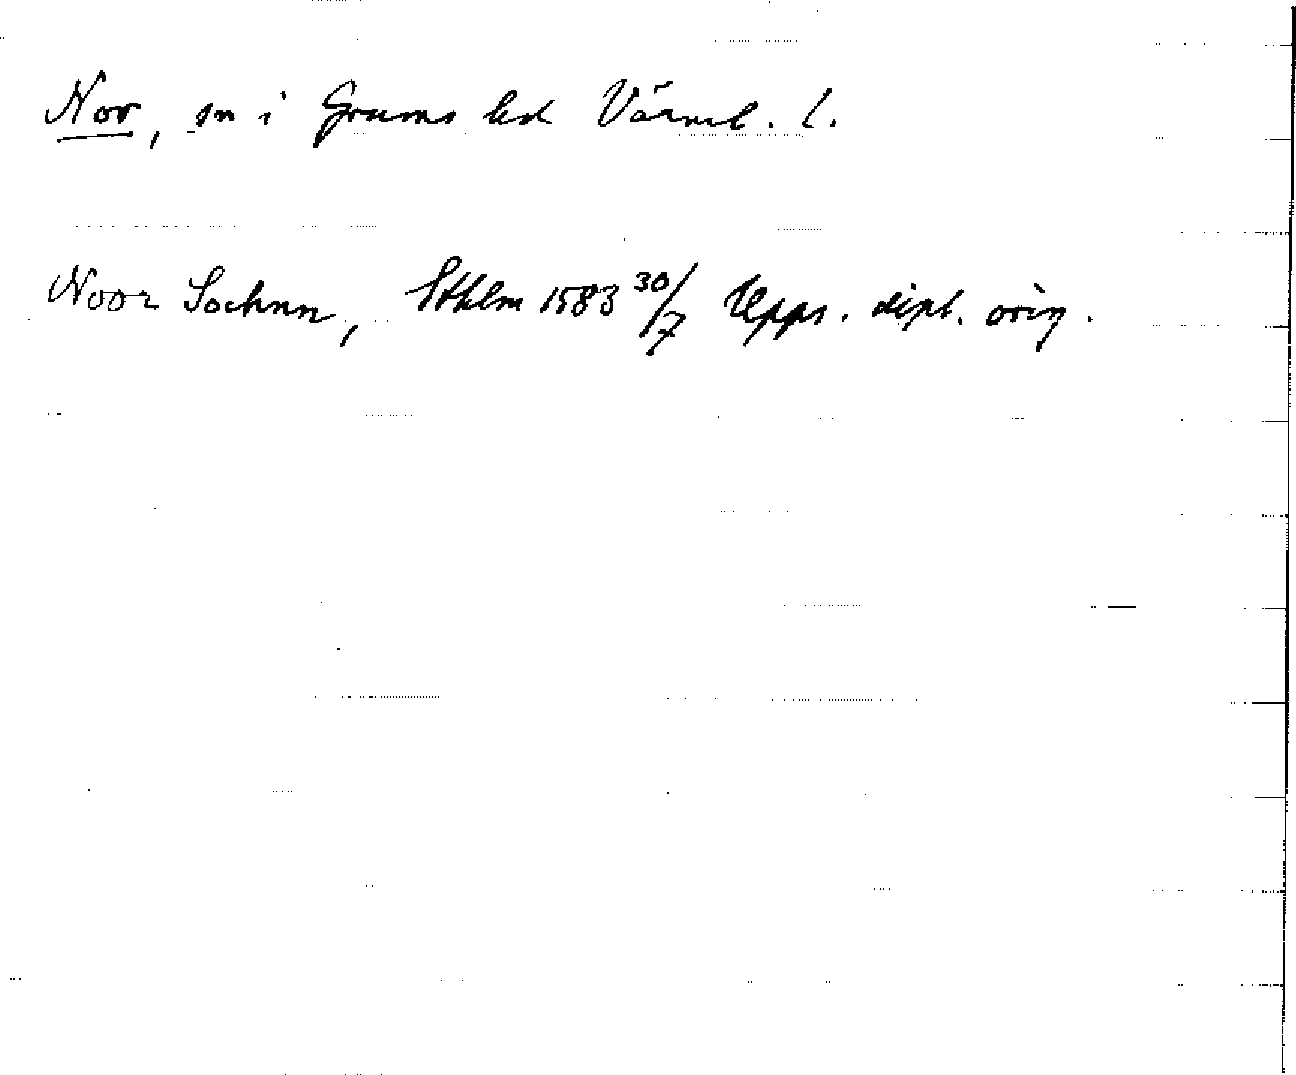 Nor, sn i Grums hd Värml. l.
Noor Sochnn, Sthlm 1583 30/7 Upps. dipl. orig.